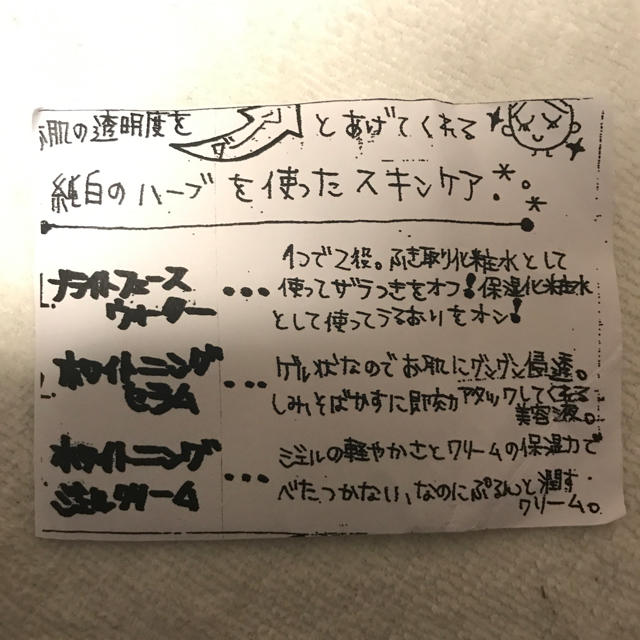 お肌の透明度を グッ とあげてくれる
純白のハーブを使ったスキンケア
ブライトフェース
ウォーター
1つで2役。ふき取り化粧水として
使ってザラつきをオフ!保湿化粧水
として使ってうるおいをオン!
ゲル状なのでお肌にグングン浸透。
しみ、そばかすに即効アタックしてくれる
美容液。
ジェルの軽やかさとクリームの保湿力で
べたつかない、なのにぷるんと潤す
クリーム。